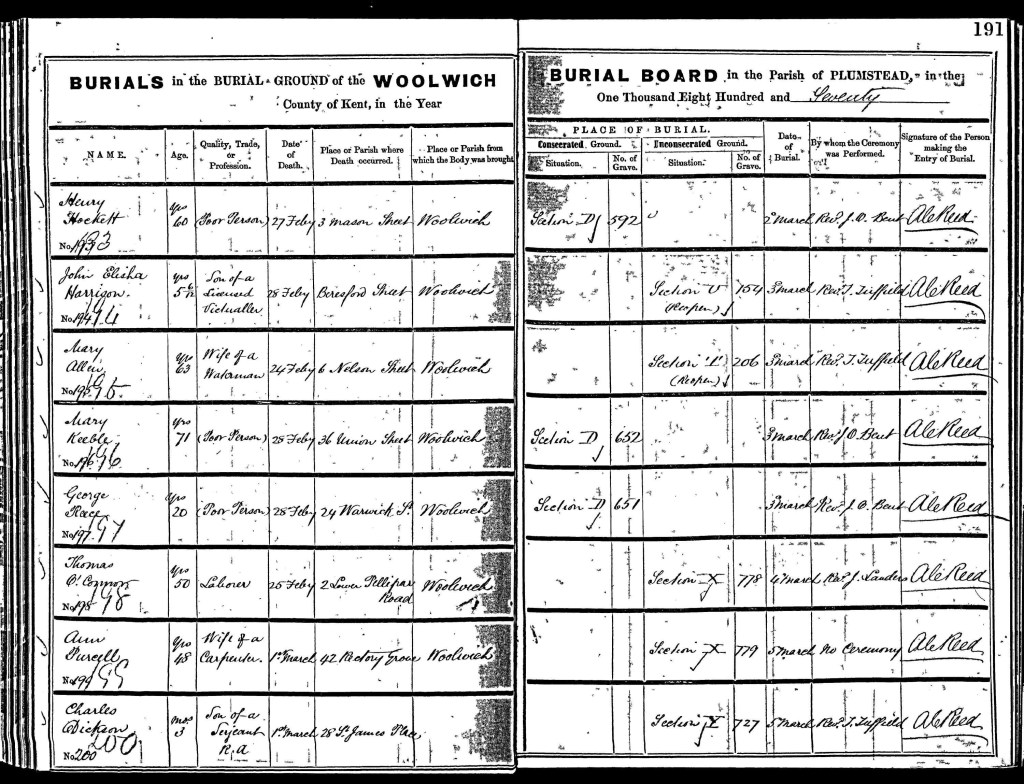 191
BURIALS in the BURIAL GROUND of the WOOLWICH
County of Kent, in the Year
BURIAL BOARD in the Parish of PLUMSTEAD, in the
One Thousand Eight Hundred and Seventy
NAME.
Age.
Quality, Trade,
or
Profession.
Date
of
Death.
Place or Parish where
Death occurred.
Place or Parish from
which the Body was brought
PLACE OF BURIAL.
Consecrated Ground.
Unconsecrated Ground.
Situation.
No. of
Grave.
Situation.
No. of
Grave.
Date
of
Burial.
By whom the Ceremony
was Performed.
Signature of the Person
making the
Entry of Burial.
Henry
Hockett
No. 193
yrs
60
(Poor Person)
27 Feby
3 Mason Street
Woolwich
Section D
592
2d March
Revd. J. O. Bent
Ale Reed
John Elisha
Harrison
No. 194
yrs
5 6/12
Son of a
Licensed
Victualler
28 Feby
Beresford Street
Woolwich
Section U
(Reopen)
154
3d March
Revd. T. Tuffield
Ale Reed
Mary
Allen
No. 195
yrs
63
Wife of a
Waterman
24 Feby
6 Nelson Street
Woolwich
Section L
(Reopen)
206
3d March
Revd. T. Tuffield
Ale Reed
Mary
Keeble
No. 196
yrs
71
(Poor Person)
28 Feby
36 Union Street
Woolwich
Section D
652
3d March
Revd. J. O. Bent
Ale Reed
George
Race
No. 197
yrs
20
(Poor Person)
28 Feby
24 Warwick St.
Woolwich
Section D
651
3d March
Rev. J. O. Bent
Ale Reed
Thomas
O'Connor
No. 198
yrs
50
Laborer
25 Feby
2 Lower Pellipar
Road
Woolwich
Section X
778
4th March
Revd. J. Landers
Ale Reed
Ann
Purcell
No. 199
yrs
48
Wife of a
Carpenter.
1st March
42 Rectory Grove
Woolwich
Section X
779
5 March
No Ceremony
Ale Reed
Charles
Dickson
No. 200
mos
3
Son of a
Serjeant
R.A
1st March
28 St. James Place
Section Y
727
5 March
Revd. T. Tuffield
Ale Reed